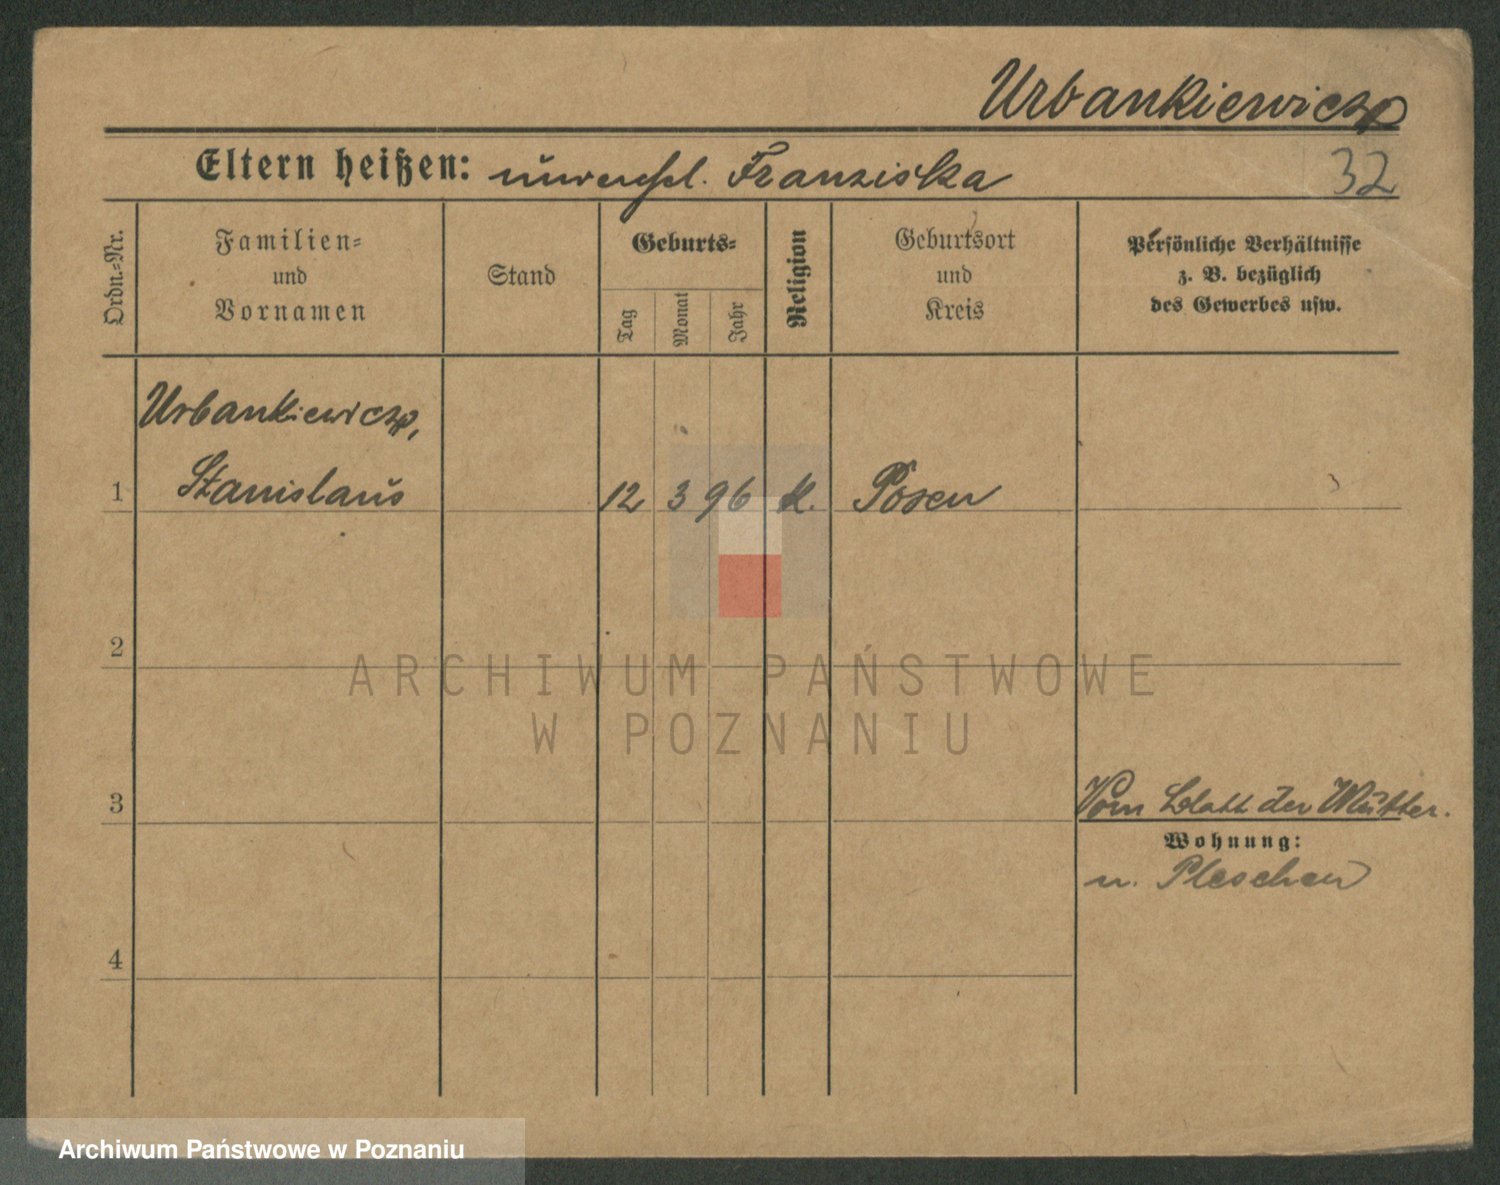 Urbankiewicz
Eltern heißen: unverehel. Franziska
32
Ordn.=Nr.
Familien=
und
Vornamen
Stand
Geburts=
Tag
Monat
Jahr
Religion
Geburtsort
und
Kreis
Persönliche Verhältnisse
z. B. bezüglich
des Gewerbes usw.
Urbankiewicz,
1 Stanislaus 12 3 96 K. Posen
2
ARCHIWUM PAŃSTWOWE
W POZNANIU
3
Vom Blatt der Mutter.
Wohnung:
n. Pleschen
4
Archiwum Państwowe w Poznaniu